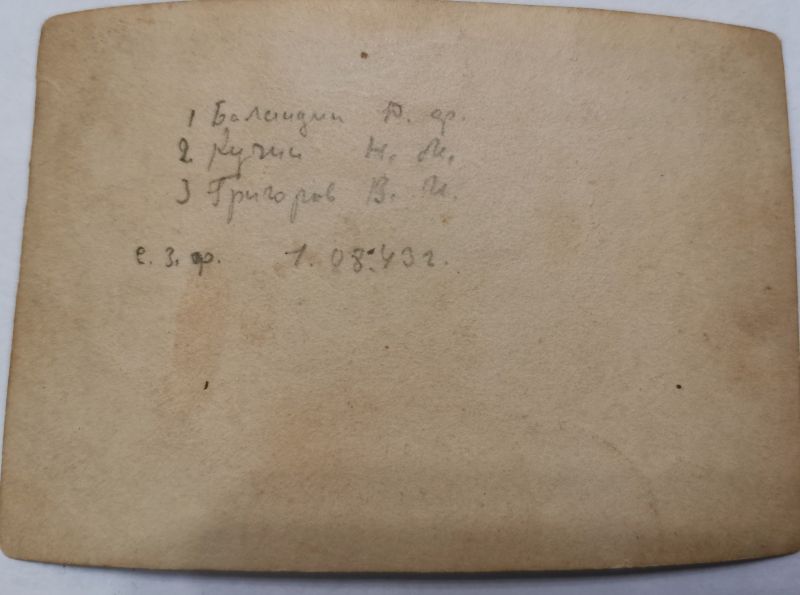 1 Баландин П. Ф.
2 Кучин Н. М.
3 Григоров В. И.
С. З. Ф. 1.08.43г.